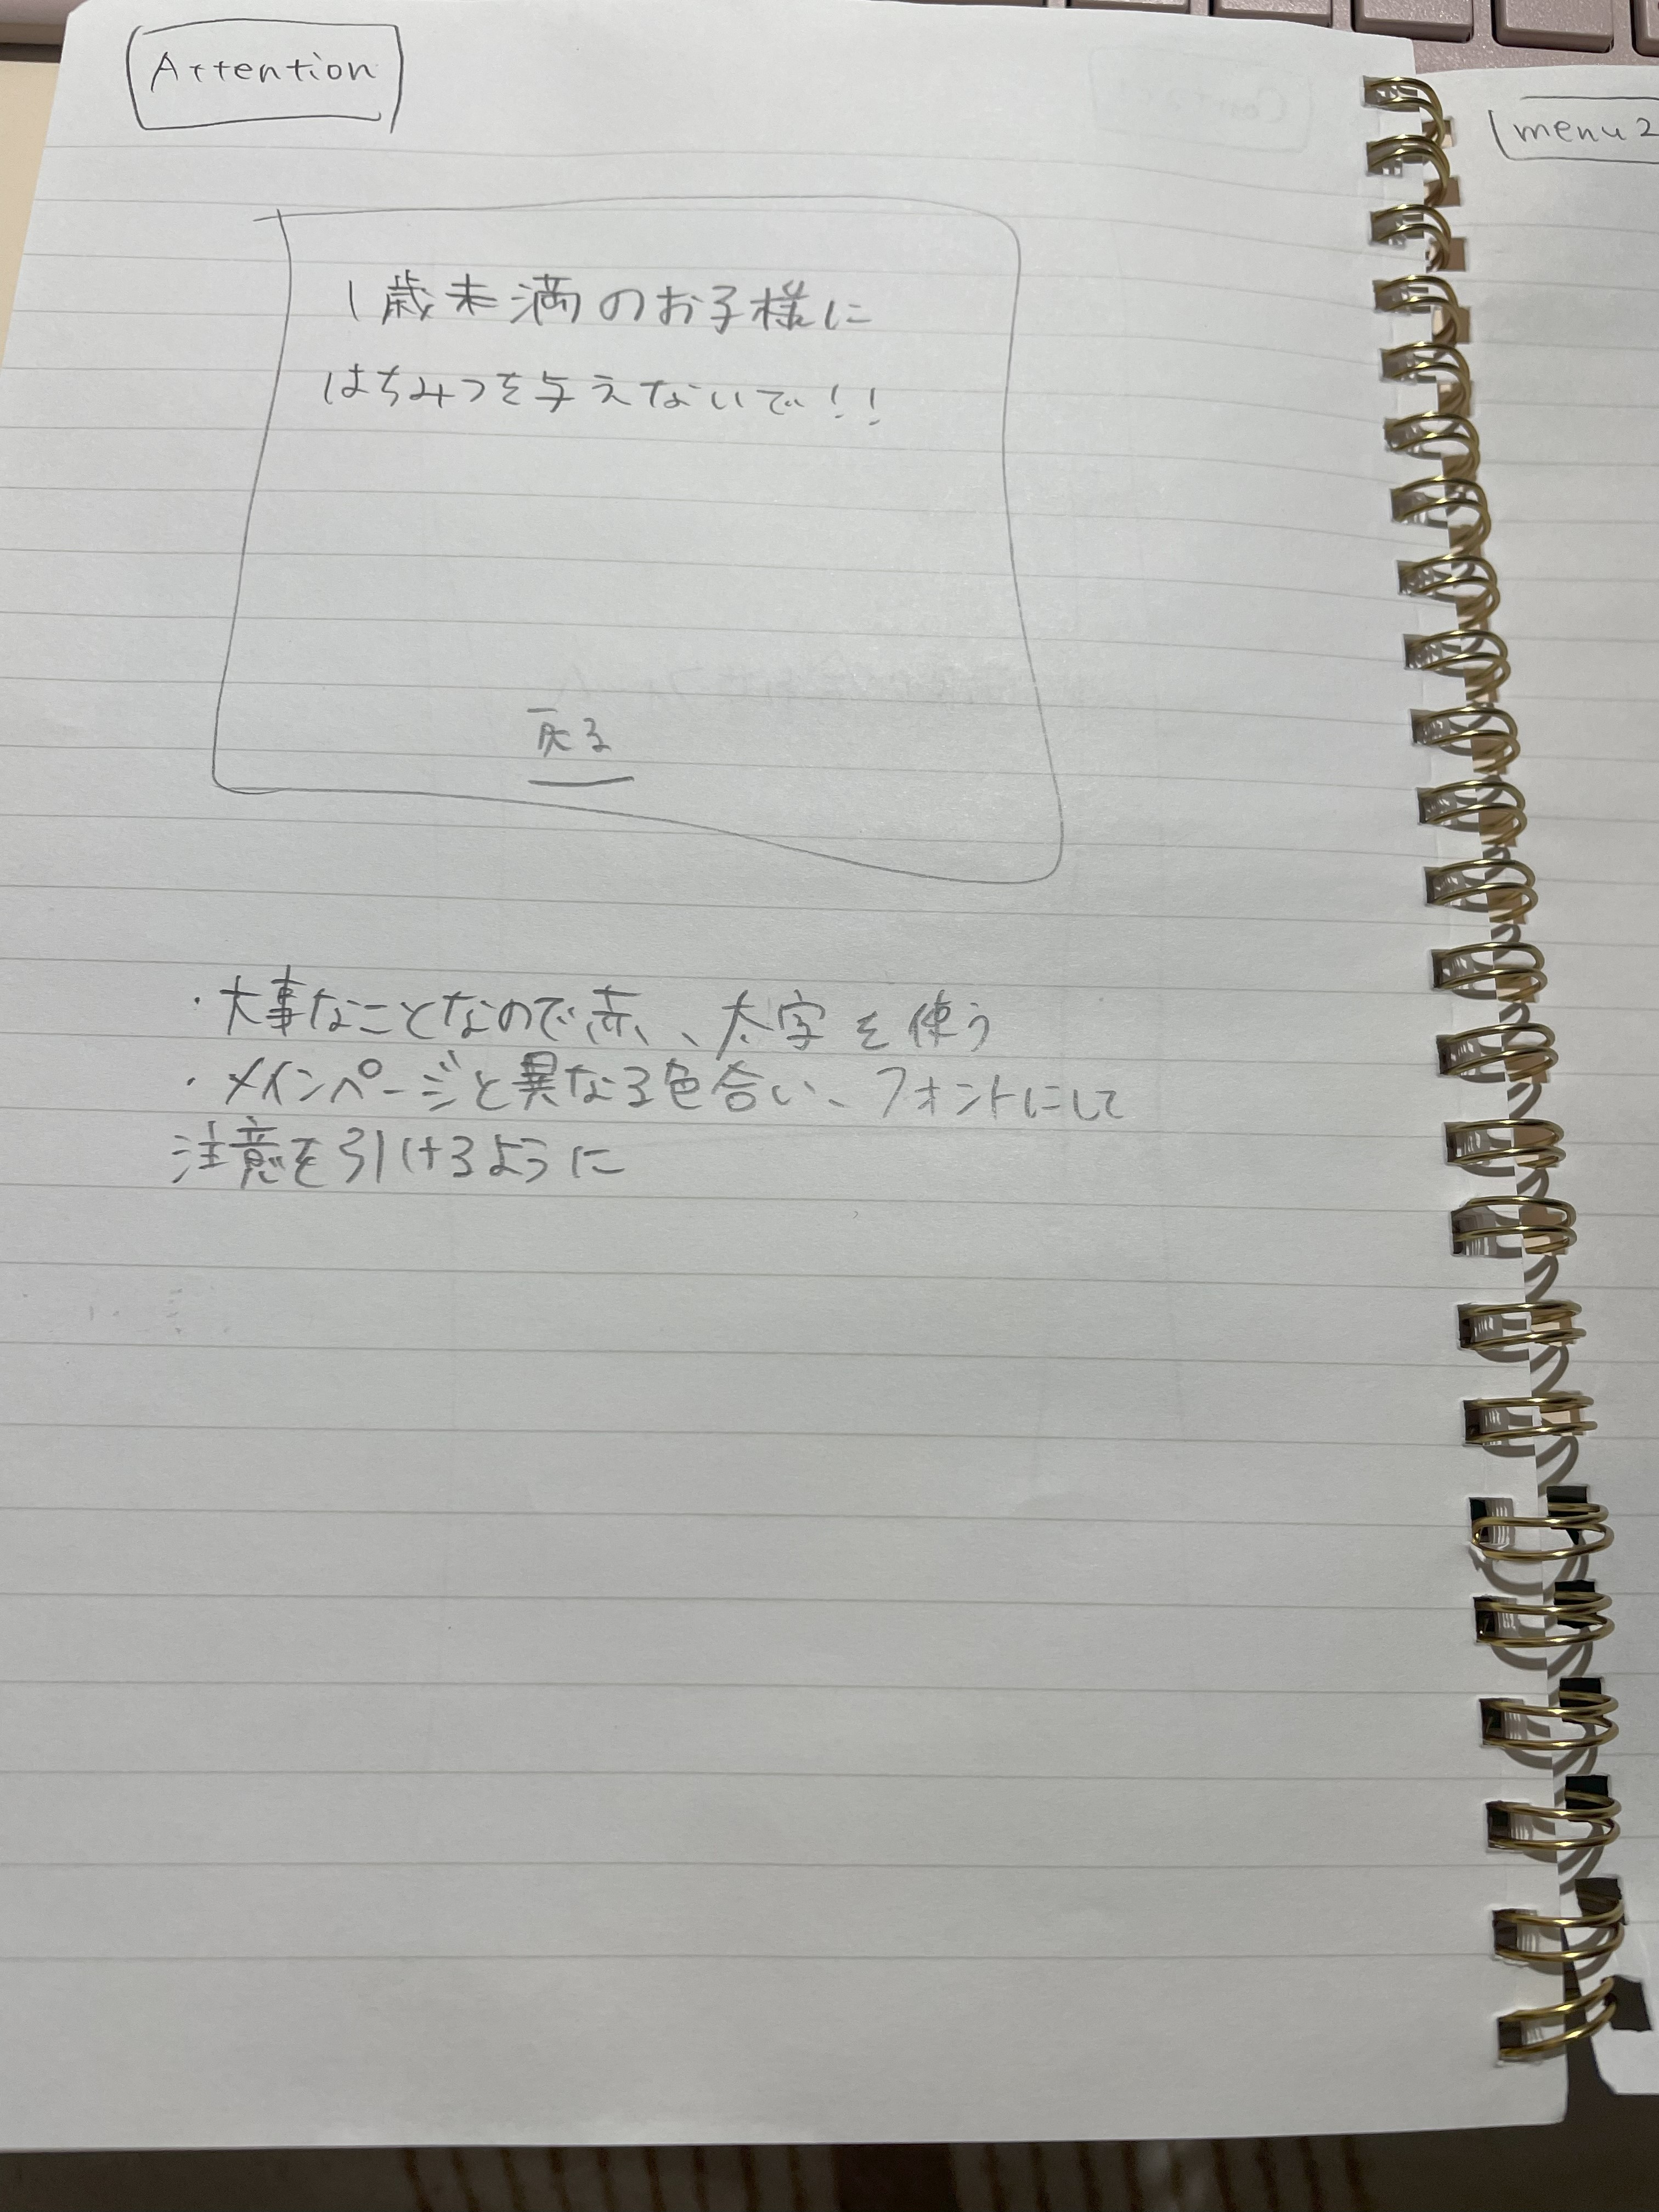 Attention
menu2
1歳未満のお子様に
はちみつを与えないで!!
戻る
・大事なことなので赤、太字を使う
・メインページと異なる色合い、フォントにして
注意を引けるように